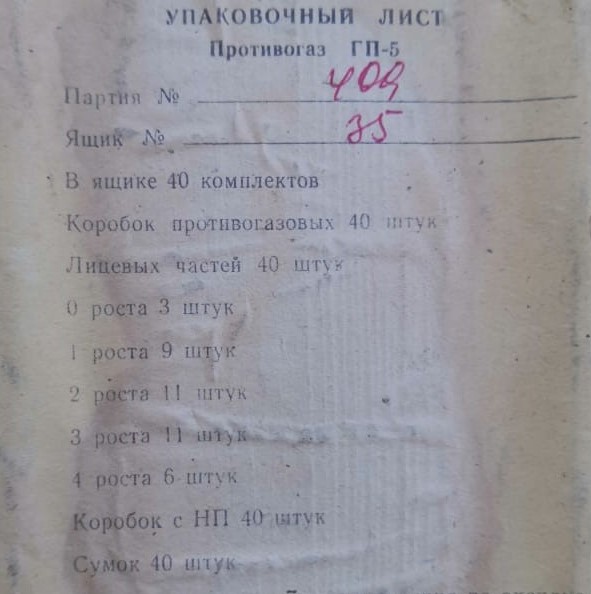 УПАКОВОЧНЫЙ ЛИСТ
Противогаз ГП-5
Партия № 409
Ящик № 35
В ящике 40 комплектов
Коробок противогазовых 40 штук
Лицевых частей 40 штук
0 роста 3 штук
1 роста 9 штук
2 роста 11 штук
3 роста 11 штук
4 роста 6 штук
Коробок с НП 40 штук
Сумок 40 штук